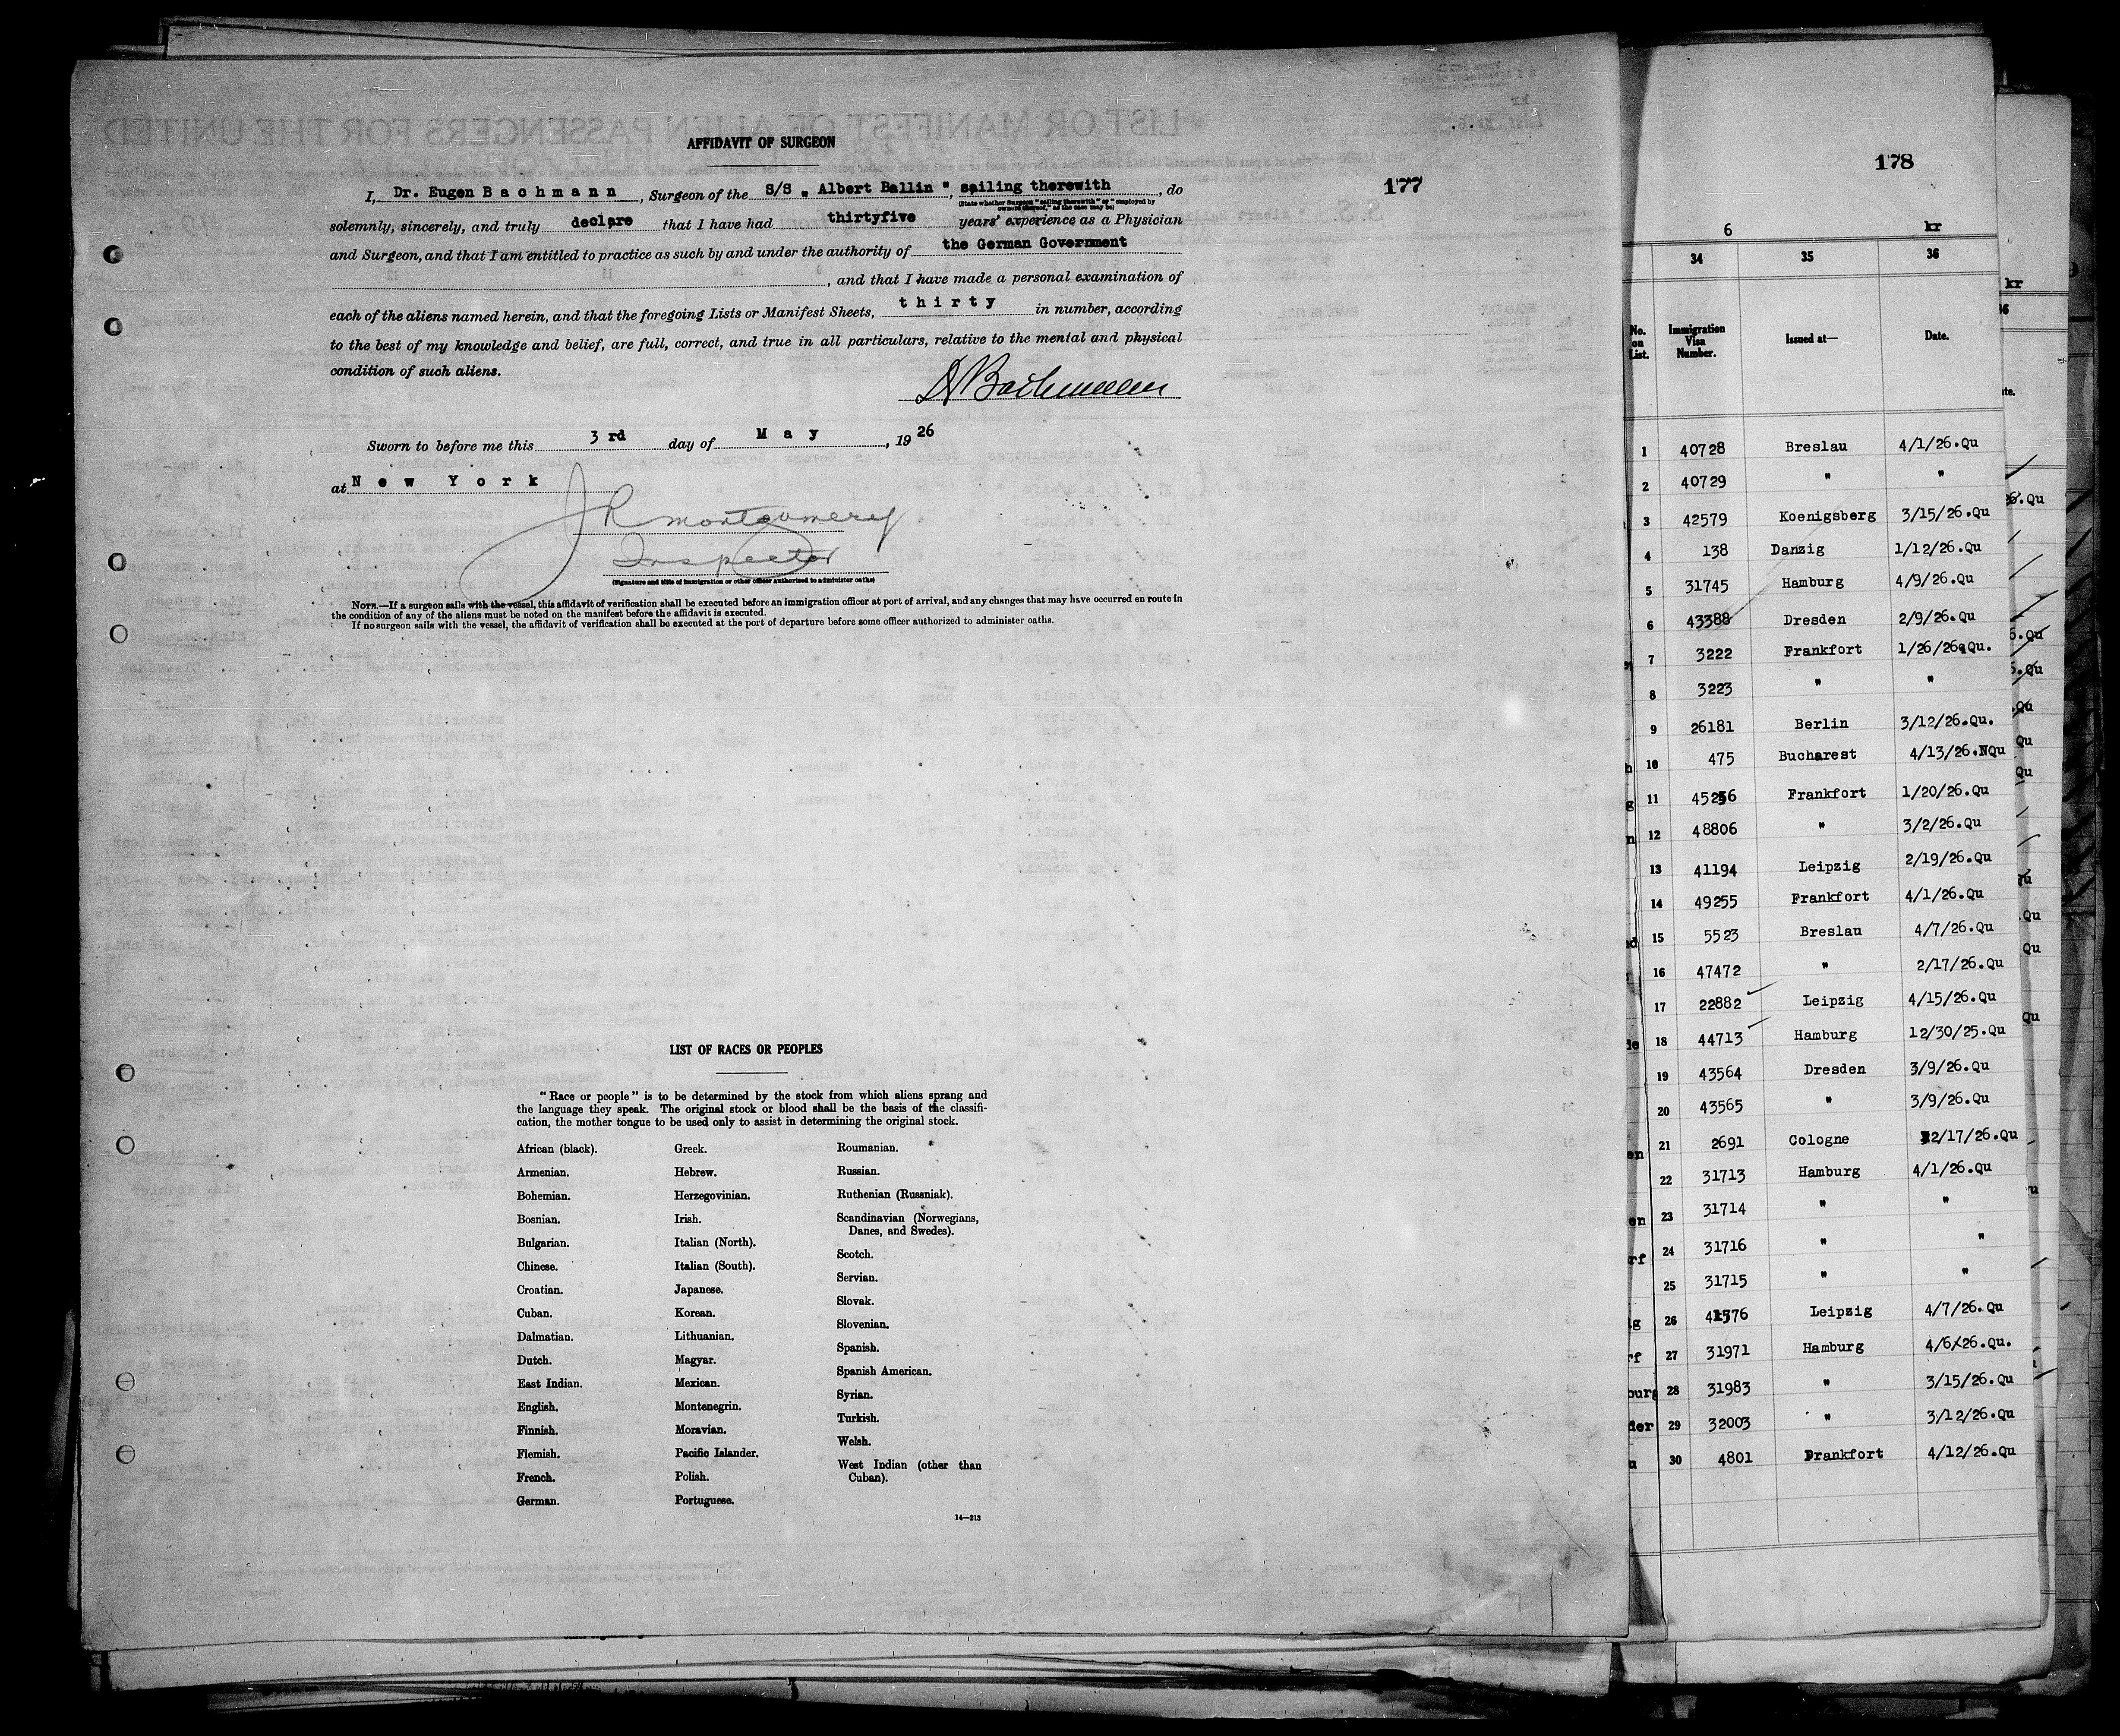 AFFIDAVIT OF SURGEON
I, Dr. Eugen B a c h m a n n , Surgeon of the S/S „ Albert Ballin ", sailing therewith , do
(State whether Surgeon "sailing therewith" or "employed by owners thereof," as the case may be)
solemnly, sincerely, and truly declare that I have had thirtyfive years' experience as a Physician
and Surgeon, and that I am entitled to practice as such by and under the authority of the German Government
, and that I have made a personal examination of
each of the aliens named herein, and that the foregoing Lists or Manifest Sheets, t h i r t y in number, according
to the best of my knowledge and belief, are full, correct, and true in all particulars, relative to the mental and physical
condition of such aliens.
Dr Bachmann
Sworn to before me this 3 rd day of M a y , 19 26
at N e w Y o r k
J R Montgomery
Inspector
(Signature and title of immigration or other officer authorized to administer oaths)
NOTE.—If a surgeon sails with the vessel, this affidavit of verification shall be executed before an immigration officer at port of arrival, and any changes that may have occurred en route in
the condition of any of the aliens must be noted on the manifest before the affidavit is executed.
If no surgeon sails with the vessel, the affidavit of verification shall be executed at the port of departure before some officer authorized to administer oaths.
177
LIST OF RACES OR PEOPLES
"Race or people" is to be determined by the stock from which aliens sprang and
the language they speak. The original stock or blood shall be the basis of the classifi-
cation, the mother tongue to be used only to assist in determining the original stock.
African (black).
Armenian.
Bohemian.
Bosnian.
Bulgarian.
Chinese.
Croatian.
Cuban.
Dalmatian.
Dutch.
East Indian.
English.
Finnish.
Flemish.
French.
German.
Greek.
Hebrew.
Herzegovinian.
Irish.
Italian (North).
Italian (South).
Japanese.
Korean.
Lithuanian.
Magyar.
Mexican.
Montenegrin.
Moravian.
Pacific Islander.
Polish.
Portuguese.
Roumanian.
Russian.
Ruthenian (Russniak).
Scandinavian (Norwegians,
Danes, and Swedes).
Scotch.
Servian.
Slovak.
Slovenian.
Spanish.
Spanish American.
Syrian.
Turkish.
Welsh.
West Indian (other than
Cuban).
14—213
178
6 kr
34 35 36
No. on List. Immigration Visa Number. Issued at— Date.
1 40728 Breslau 4/1/26.Qu
2 40729 " "
3 42579 Koenigsberg 3/15/26.Qu
4 138 Danzig 1/12/26.Qu
5 31745 Hamburg 4/9/26.Qu
6 43388 Dresden 2/9/26.Qu
7 3222 Frankfort 1/26/26.Qu.
8 3223 " "
9 26181 Berlin 3/12/26.Qu.
10 475 Bucharest 4/13/26.NQu
11 45256 Frankfort 1/20/26.Qu
12 48806 " 3/2/26.Qu
13 41194 Leipzig 2/19/26.Qu
14 49255 Frankfort 4/1/26.Qu
15 5523 Breslau 4/7/26.Qu
16 47472 " 2/17/26.Qu
17 22882 Leipzig 4/15/26.Qu
18 44713 Hamburg 12/30/25.Qu
19 43564 Dresden 3/9/26.Qu
20 43565 " 3/9/26.Qu
21 2691 Cologne 2/17/26.Qu
22 31713 Hamburg 4/1/26.Qu
23 31714 " "
24 31716 " "
25 31715 " "
26 Leipzig 4/7/26.Qu
27 31971 Hamburg 4/6/26.Qu.
28 31983 " 3/15/26.Qu
29 32003 " 3/12/26.Qu
30 4801 Frankfort 4/12/26.Qu